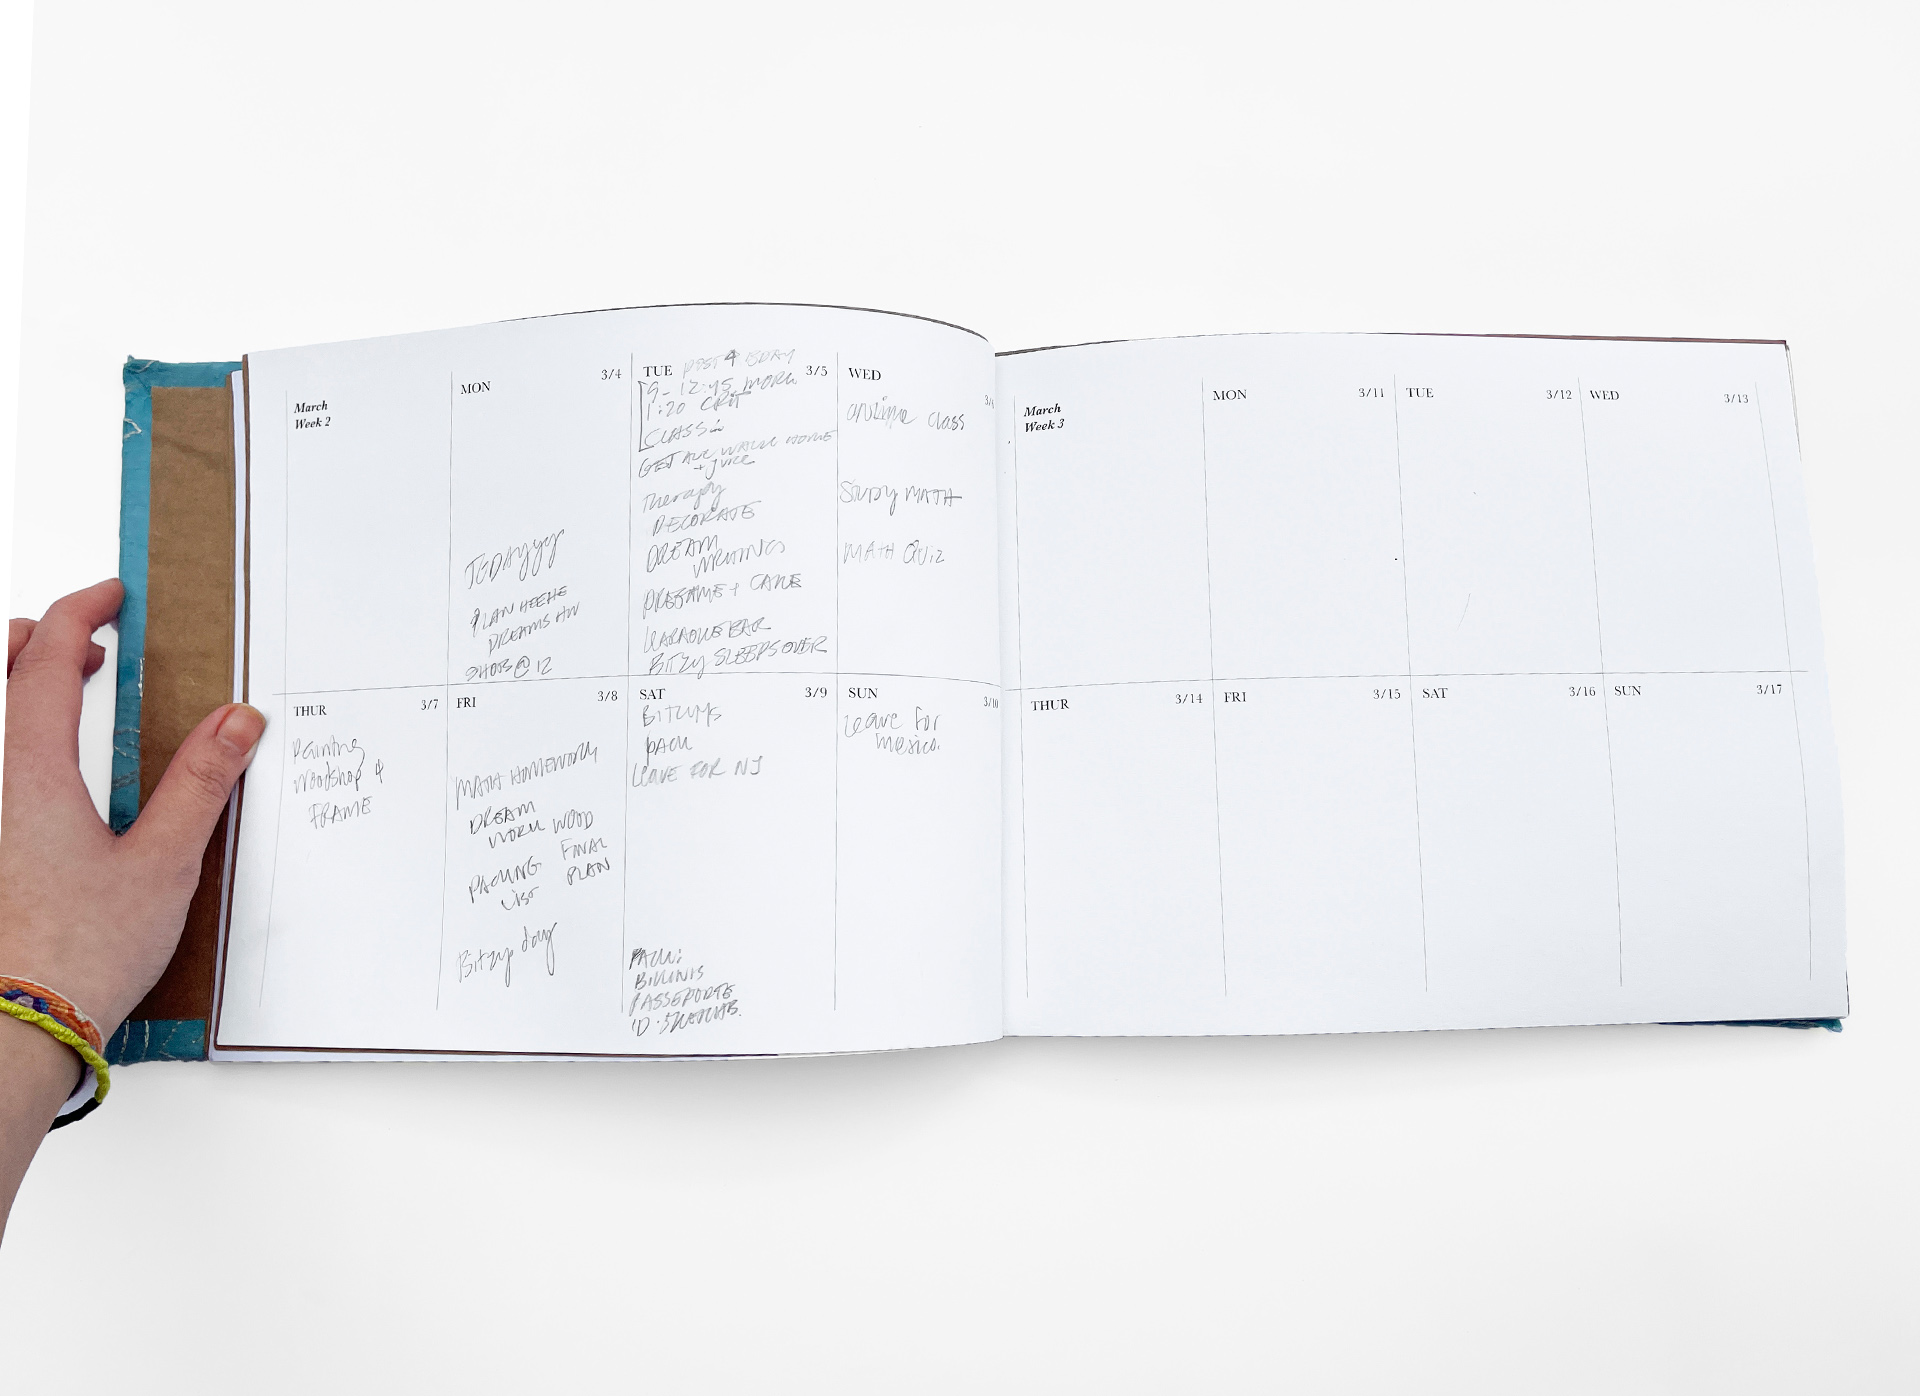 March
Week 2
MON 3/4
PLAN HEEHE
DREAMS HW
SHOTS @ 12
TUE 3/5
POST 4 BDAY
9-12:45 WORK
1:20 CRIT
CLASS
GET WALK HOME
+ JUICE
Therapy
DECORATE
DREAM
WRITINGS
PREGAME + CAKE
KARAOKE BAR
BITZY SLEEPSOVER
WED
online class
STUDY MATH
MATH QUIZ
THUR 3/7
Painting
Woodshop 4
FRAME
FRI 3/8
MATH HOMEWORK
DREAM
WORK WOOD
FINAL
PLAN
PACKING
LIST
Bitzy day
SAT 3/9
PACK
LEAVE FOR NJ
PACK:
BIKINIS
PASSEPORTE
ID
SUN 3/10
Leave for
Mexico.
March
Week 3
MON 3/11
TUE 3/12
WED 3/13
THUR 3/14
FRI 3/15
SAT 3/16
SUN 3/17